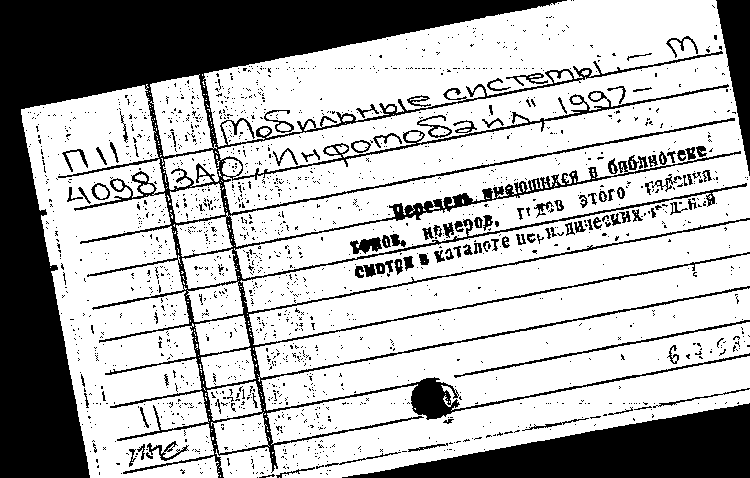 П11 Мобильные системы. — М.:
4098 ЗАО „Инфотобайл", 1997—
Перечень имеющихся в библиотеке
томов, номеров, годов этого издания
смотри в каталоге периодических изданий
11